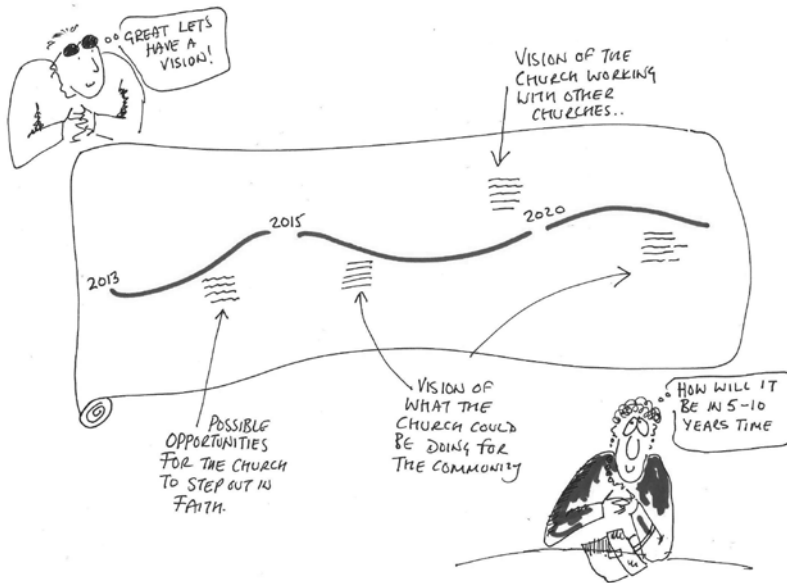 GREAT LETS
HAVE A
VISION!
VISION OF THE
CHURCH WORKING
WITH OTHER
CHURCHES..
2013
2015
2020
POSSIBLE
OPPORTUNITIES
FOR THE CHURCH
TO STEP OUT IN
FAITH.
VISION OF
WHAT THE
CHURCH COULD
BE DOING FOR
THE COMMUNITY
HOW WILL IT
BE IN 5-10
YEARS TIME